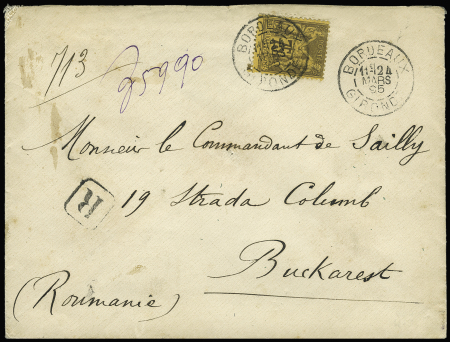 713
25990
BORDEAUX
GIRONDE
BORDEAUX
24
MARS
95
GIRONDE
Monsieur le Commandant de Sailly
R
19 Strada Columb
Buckarest
(Roumanie)